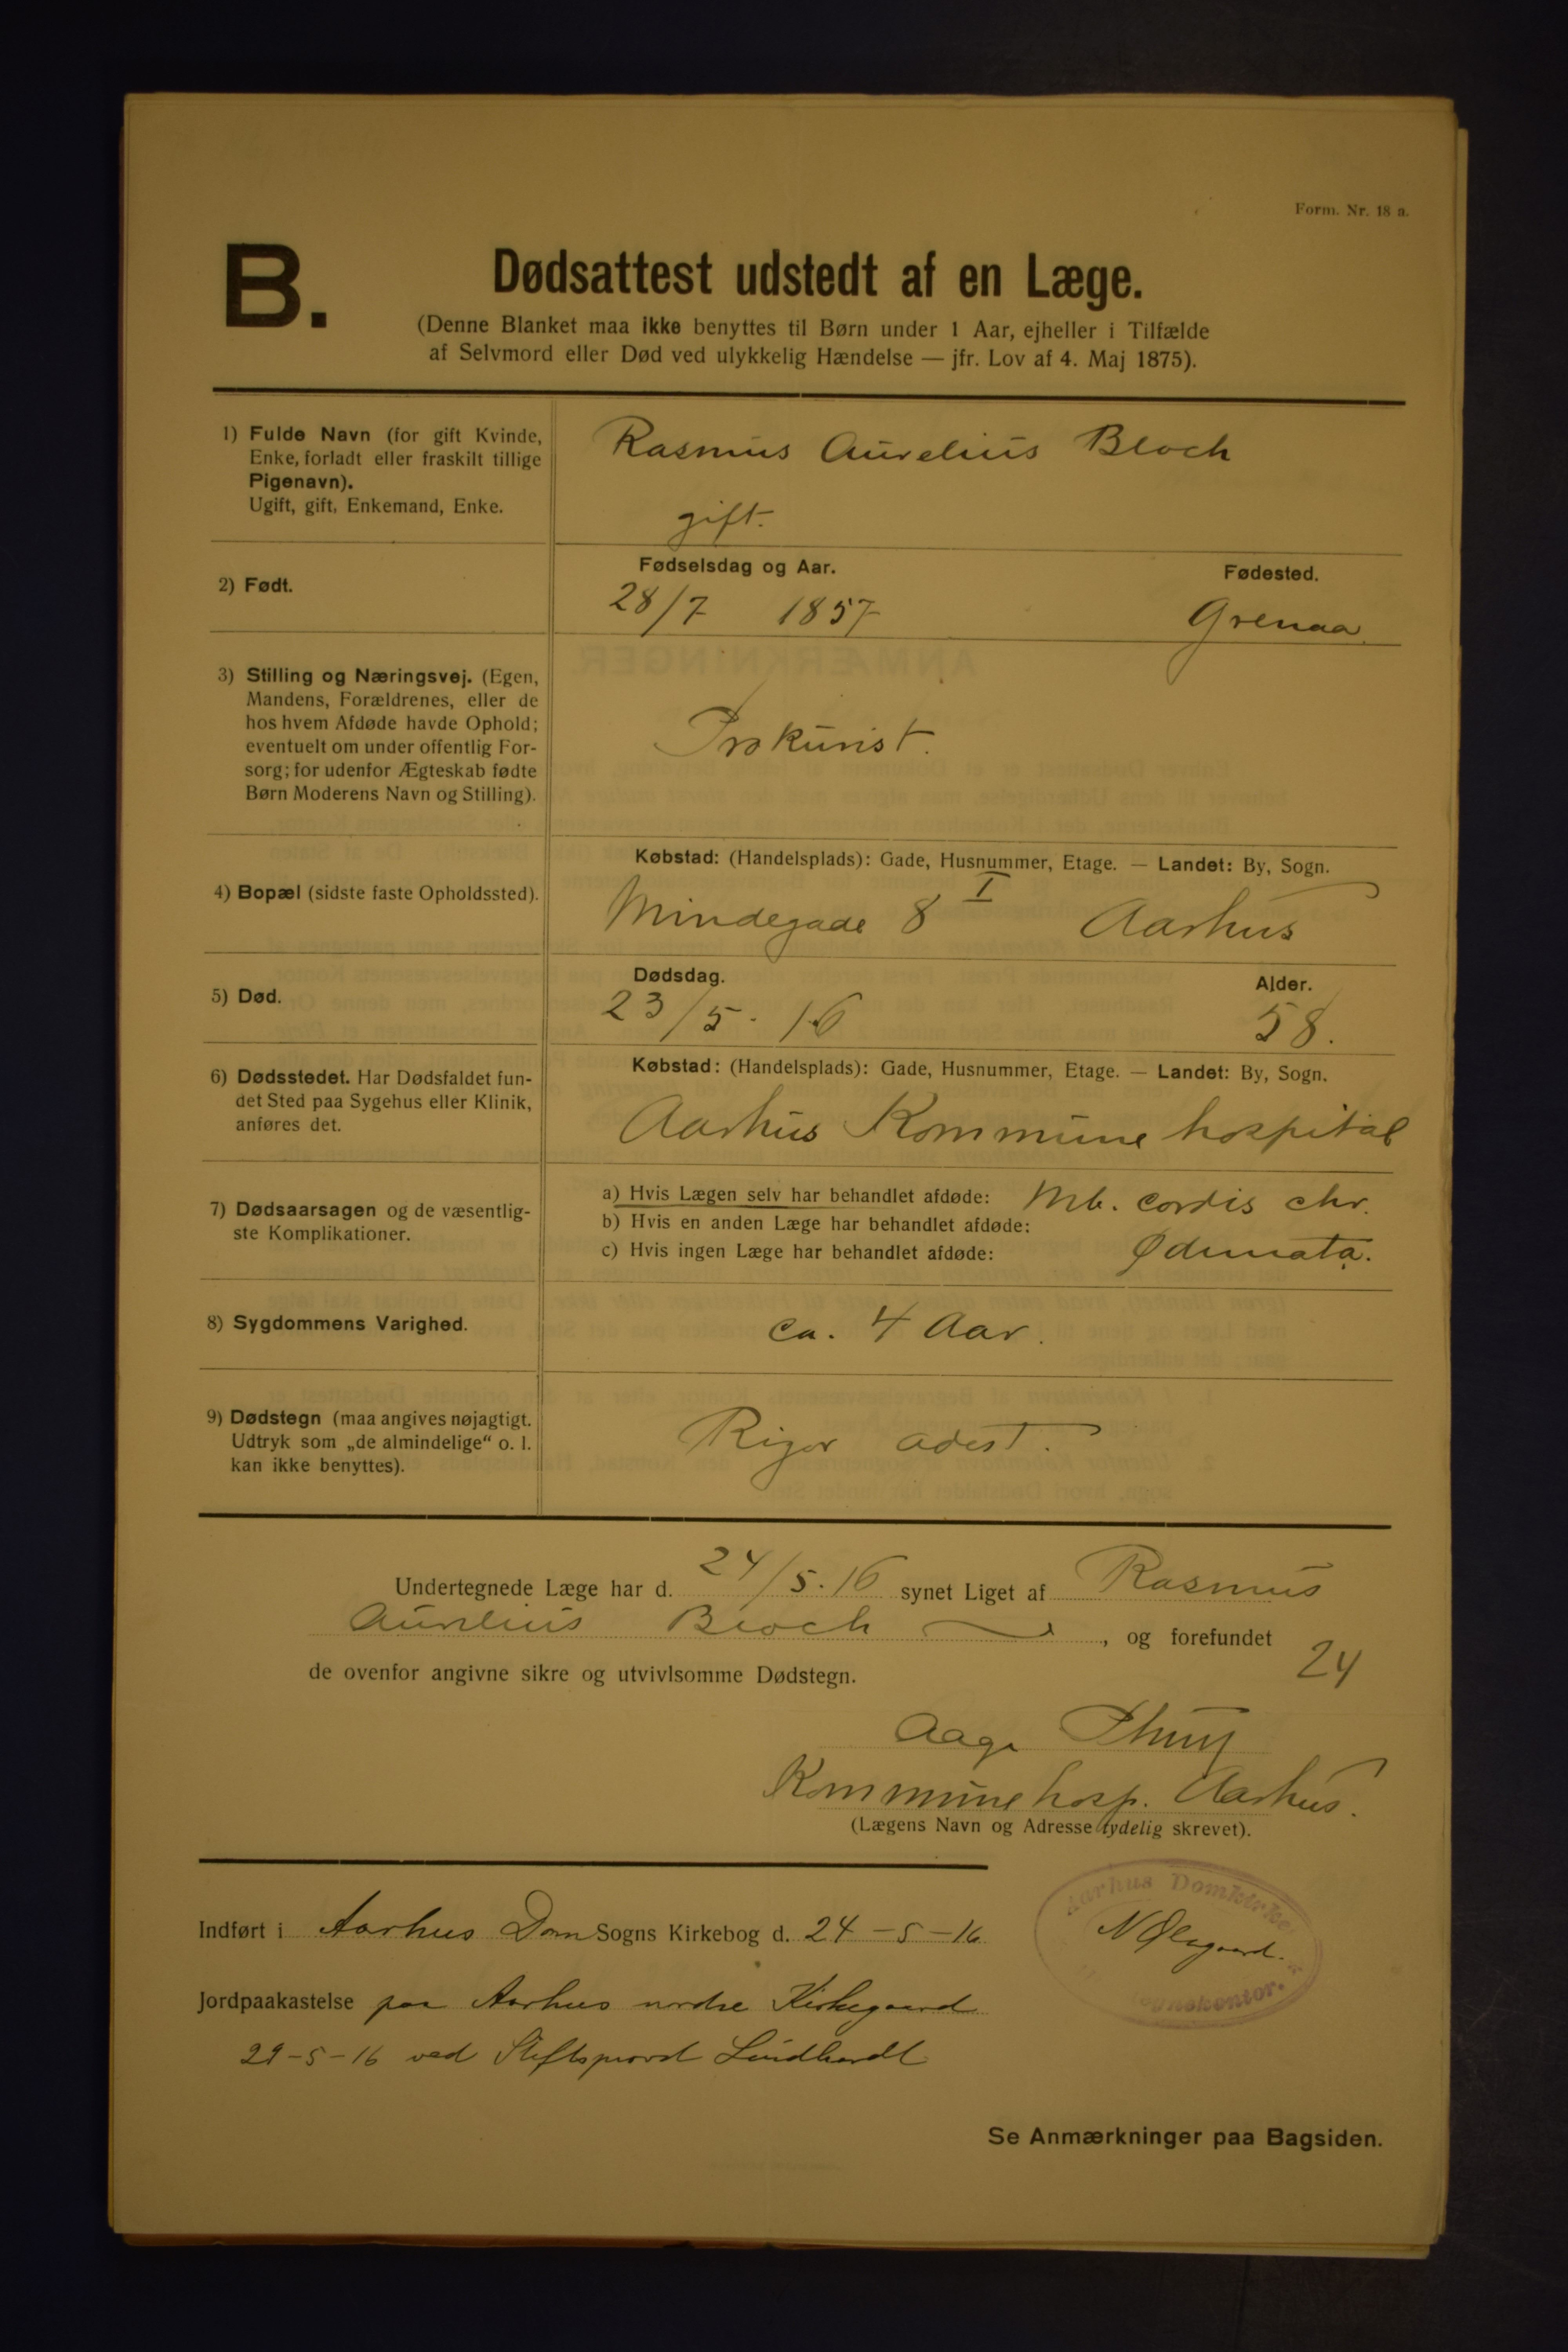 Form. Nr. 18 a.
B.
Dødsattest udstedt af en Læge.
(Denne Blanket maa ikke benyttes til Børn under 1 Aar, ejheller i Tilfælde
af Selvmord eller Død ved ulykkelig Hændelse — jfr. Lov af 4. Maj 1875).
1) Fulde Navn (for gift Kvinde,
Enke, forladt eller fraskilt tillige
Pigenavn).
Ugift, gift, Enkemand, Enke.
Rasmus Aurelius Bloch
gift.
2) Født.
Fødselsdag og Aar.
28/7 1857
Fødested.
Grenaa.
3) Stilling og Næringsvej. (Egen,
Mandens, Forældrenes, eller de
hos hvem Afdøde havde Ophold;
eventuelt om under offentlig For-
sorg; for udenfor Ægteskab fødte
Børn Moderens Navn og Stilling).
Prokurist.
4) Bopæl (sidste faste Opholdssted).
Købstad: (Handelsplads): Gade, Husnummer, Etage. — Landet: By, Sogn.
Mindegade 8 I Aarhus
5) Død.
Dødsdag.
23/5. 16
Alder.
58.
6) Dødsstedet. Har Dødsfaldet fun-
det Sted paa Sygehus eller Klinik,
anføres det.
Købstad: (Handelsplads): Gade, Husnummer, Etage. — Landet: By, Sogn.
Aarhus Kommunehospital
7) Dødsaarsagen og de væsentlig-
ste Komplikationer.
a) Hvis Lægen selv har behandlet afdøde: Mb. cordis chr.
b) Hvis en anden Læge har behandlet afdøde:
c) Hvis ingen Læge har behandlet afdøde: Ødemata.
8) Sygdommens Varighed.
ca. 4 Aar.
9) Dødstegn (maa angives nøjagtigt.
Udtryk som „de almindelige“ o. l.
kan ikke benyttes).
Rigor adest.
Undertegnede Læge har d. 24/5. 16 synet Liget af Rasmus
Aurelius Bloch, og forefundet
de ovenfor angivne sikre og utvivlsomme Dødstegn.
24
Aage
Kommunehosp. Aarhus.
(Lægens Navn og Adresse tydelig skrevet).
Indført i Aarhus Dom Sogns Kirkebog d. 24-5-16
Aarhus Domkirke
Jordpaakastelse paa Aarhus nordre Kirkegaard
29-5-16 ved Stiftsprovst Lindhardt
Se Anmærkninger paa Bagsiden.